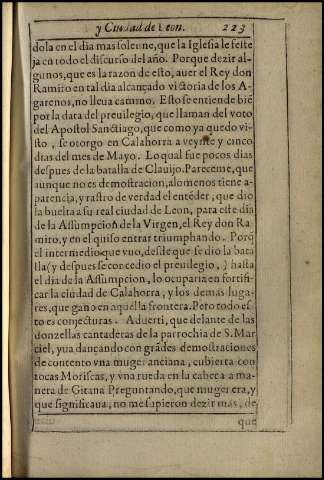 y Ciudad de Leon. 223
dola en el dia mas solenne, que la Iglesia le feste
ja en todo el discurso del año. Porque dezir al-
gunos, que es la razon de esto, auer el Rey don
Ramiro en tal dia alcançado victoria de los A-
garenos, no lleua camino. Esto se entiende biē
por la data del preuilegio, que llaman del voto
del Apostol Sanctiago, que como ya quedo vi-
sto, se otorgo en Calahorra a veynte y cinco
dias del mes de Mayo. Lo qual fue pocos dias
despues de la batalla de Clauijo. Pareceme, que
aunque no es demostracion, alomenos tiene a-
parencia, y rastro de verdad el entēder, que dio
la buelta a su real ciudad de Leon, para este dia
de la Assumpcion de la Virgen, el Rey don Ra-
miro, y en el quiso entrar triumphando. Porq̄
el intermedio que vuo, desde que se dio la bata
lla (y despues se concedio el preuilegio,) hasta
el dia de la Assumpcion, lo ocuparia en fortifi-
car la ciudad de Calahorra, y los demas luga-
res, que gano en aquella frontera. Pero todo es-
to es conjecturas. Aduerti, que delante de las
donzellas cantaderas de la parrochia de S. Mar-
ciel, yua dançando con grādes demostraciones
de contento vna muger anciana, cubierta con
tocas Moriscas, y vna rueda en la cabeça a ma-
nera de Gitana Preguntando, que muger era, y
que significaua, no me supieron dezir mas, de
que